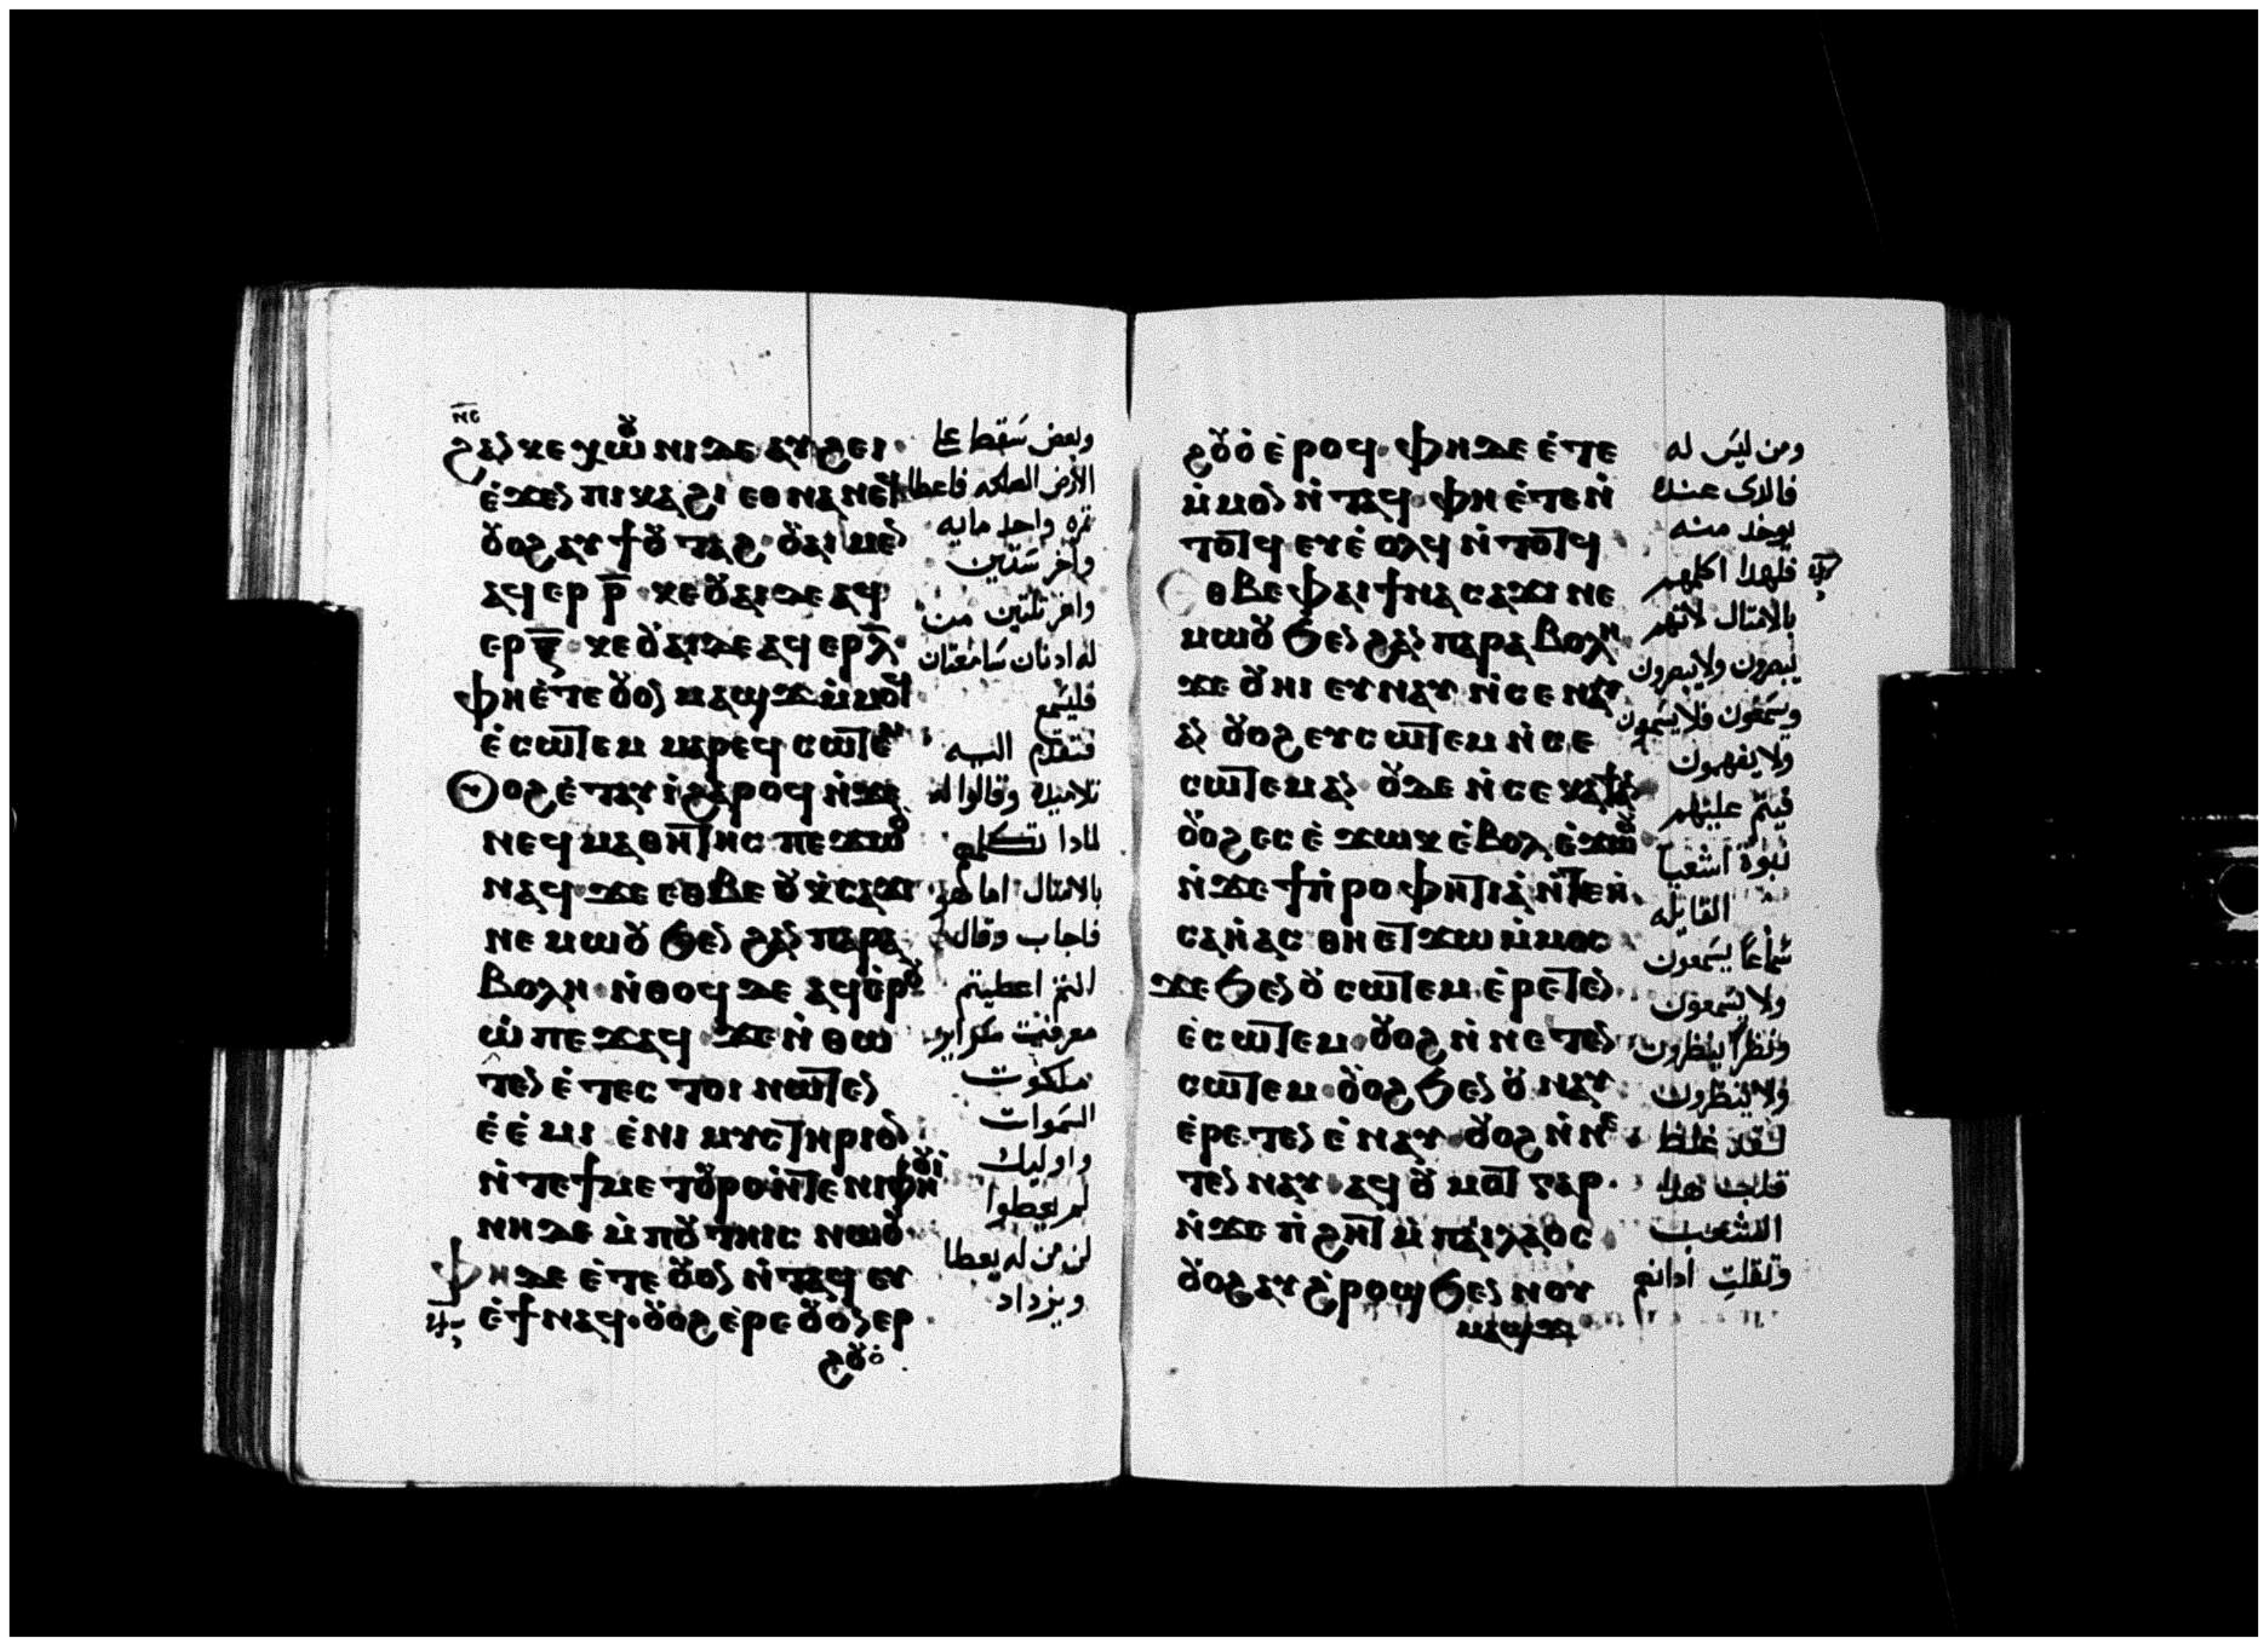 ⲛⲋ
ϩⲁⲛⲕⲉⲭⲱⲟⲩⲛⲓ ⲇⲉ ⲁⲩϩⲉⲓ
ⲉ̇ϫⲉⲛ ⲡⲓⲕⲁϩⲓ ⲉⲑⲛⲁⲛⲉϥ
ⲟⲩⲟϩ ⲁⲩϯⲟⲩⲧⲁϩ ⲟⲩⲁⲓ ⲙⲉⲛ
ⲁϥⲉⲣ ⲣ̅ ⲕⲉⲟⲩⲁⲓ ⲇⲉ ⲁϥ
ⲉⲣ ⲝ̅ ⲕⲉⲟⲩⲁⲓ ⲇⲉ ⲁϥⲉⲣ ⲗ̅
ⲫⲏⲉ̇ⲧⲉ ⲟⲩⲟⲛ ⲙⲁϣϫ ⲙ̇ⲙⲟϥ
ⲉ̇ⲥⲱⲧⲉⲙ ⲙⲁⲣⲉϥⲥⲱⲧⲉⲙ
ⲟⲩⲟϩ ⲉ̇ⲧⲁⲩⲓ̇ ϩⲁⲣⲟϥ ⲛ̇ϫⲉ
ⲛⲉϥⲙⲁⲑⲏⲧⲏⲥ ⲡⲉϫⲱⲟⲩ
ⲛⲁϥ ϫⲉ ⲉⲑⲃⲉ ⲟⲩ ⲕ̇ⲥⲁϫⲓ
ⲛⲉⲙⲱⲟⲩ ϧⲉⲛ ϩⲁⲛⲡⲁⲣⲁ
ⲃⲟⲗⲏ ⲛ̇ⲑⲟϥ ⲇⲉ ⲁϥⲉⲣⲟⲩ
ⲱ̇ ⲡⲉϫⲁϥ ϫⲉ ⲛ̇ⲑⲱ
ⲧⲉⲛ ⲉ̇ⲧⲉⲥⲧⲟⲓ ⲛⲱⲧⲉⲛ
ⲉ̇ⲉ̇ⲙⲓ ⲉ̇ⲛⲓⲙⲩⲥⲧⲏⲣⲓⲟⲛ
ⲛ̇ⲧⲉ ϯⲙⲉⲧⲟⲩⲣⲟ ⲛ̇ⲧⲉ ⲛⲓⲫⲏⲟⲩⲓ
ⲛⲏ ⲇⲉ ⲙ̇ⲡⲟⲩⲧⲏⲓⲥ ⲛⲱⲟⲩ
ⲫⲏ ⲇⲉ ⲉ̇ⲧⲉ ⲟⲩⲟⲛ ⲛ̇ⲧⲁϥ ⲉⲩ
ⲉ̇ϯ ⲛⲁϥ ⲟⲩⲟϩ ⲉ̇ⲣⲉ ⲟⲩⲟⲛ ⲉⲣ
ϩⲟⲩⲟ̇
وبعض سَقط على
الارض الصالحه فاعطا
ثمره واحد مايه
واخر ستين
واخر ثلثين من
له ادنان سامعتان
فليسمع
فتقدم اليه
تلاميذه وقالوا له
لمادا تكلمهم
بالامتال اما هو
فاجاب وقال
انتم اعطيتم
ملكوت
السموات
واوليك
لم يعطوا
لان من له يعطا
ويزداد
ϩⲟⲩⲟ̇ ⲉ̇ⲣⲟϥ ⲫⲏ ⲇⲉ ⲉ̇ⲧⲉ
ⲙ̇ⲙⲟⲛ ⲛ̇ⲧⲁϥ ⲫⲏ ⲉ̇ⲧⲉⲛ̇
ⲧⲟⲧϥ ⲉⲩⲉ̇ⲟⲗϥ ⲛ̇ⲧⲟⲧϥ
ⲉⲑⲃⲉ ⲫⲁⲓ ϯⲛⲁⲥⲁϫⲓ ⲛⲉ
ⲙⲱⲟⲩ ϧⲉⲛ ϩⲁⲛⲡⲁⲣⲁⲃⲟⲗⲏ
ϫⲉ ⲟⲩⲏⲓ ⲉⲩⲛⲁⲩ ⲛ̇ⲥⲉⲛⲁⲩ
ⲁⲛ ⲟⲩⲟϩ ⲉⲩⲥⲱⲧⲉⲙ ⲛ̇ⲥⲉ
ⲥⲱⲧⲉⲙ ⲁⲛ ⲟⲩⲇⲉ ⲛ̇ⲥⲉⲕⲁϯ ⲁⲛ
ⲟⲩⲟϩ ⲉⲥⲉ̇ϫⲱⲕ ⲉ̇ⲃⲟⲗ ⲉ̇ϫⲱⲟⲩ
ⲛ̇ϫⲉ ϯⲡ̇ⲣⲟⲫⲏⲧⲓⲁ̇ ⲛ̇ⲧⲉ ⲏ̇
ⲥⲁⲏ̇ⲁⲥ ⲑⲏⲉⲧϫⲱ ⲙ̇ⲙⲟⲥ
ϫⲉ ϧⲉⲛ ⲟⲩⲥⲱⲧⲉⲙ ⲉ̇ⲣⲉⲧⲉⲛ
ⲉ̇ⲥⲱⲧⲉⲙ ⲟⲩⲟϩ ⲛ̇ⲛⲉⲧⲉⲛ
ⲥⲱⲧⲉⲙ ⲟⲩⲟϩ ϧⲉⲛ ⲟⲩⲛⲁⲩ
ⲉ̇ⲣⲉⲧⲉⲛ ⲉ̇ⲛⲁⲩ ⲟⲩⲟϩ ⲛ̇ⲛⲉ
ⲧⲉⲛ ⲛⲁⲩ ⲁϥⲟⲩⲙⲟⲧ ⲅⲁⲣ
ⲛ̇ϫⲉ ⲡ̇ϩⲏⲧ ⲙ̇ⲡⲁⲓⲗⲁⲟⲥ
ⲟⲩⲟϩ ⲁⲩϩ̇ⲣⲟϣ ϧⲉⲛ ⲛⲟⲩ
ⲙⲁϣϫ
ومن ليس له
فالدى عنده
يوخد منه
فلهدا اكلمهم
بالامتال لانهم
يبصرون ولا يبصرون
ويسمعون فلا يسمعون
ولا يفهمون
فيتم عليهم
نبوة اشعيا
القايله
سماعًا يسمعون
ولا يسمعون
ونظرًا ينظرون
ولا ينظرون
لقد غلظ
قلب هدا
الشعب
وثقلت ادانهم